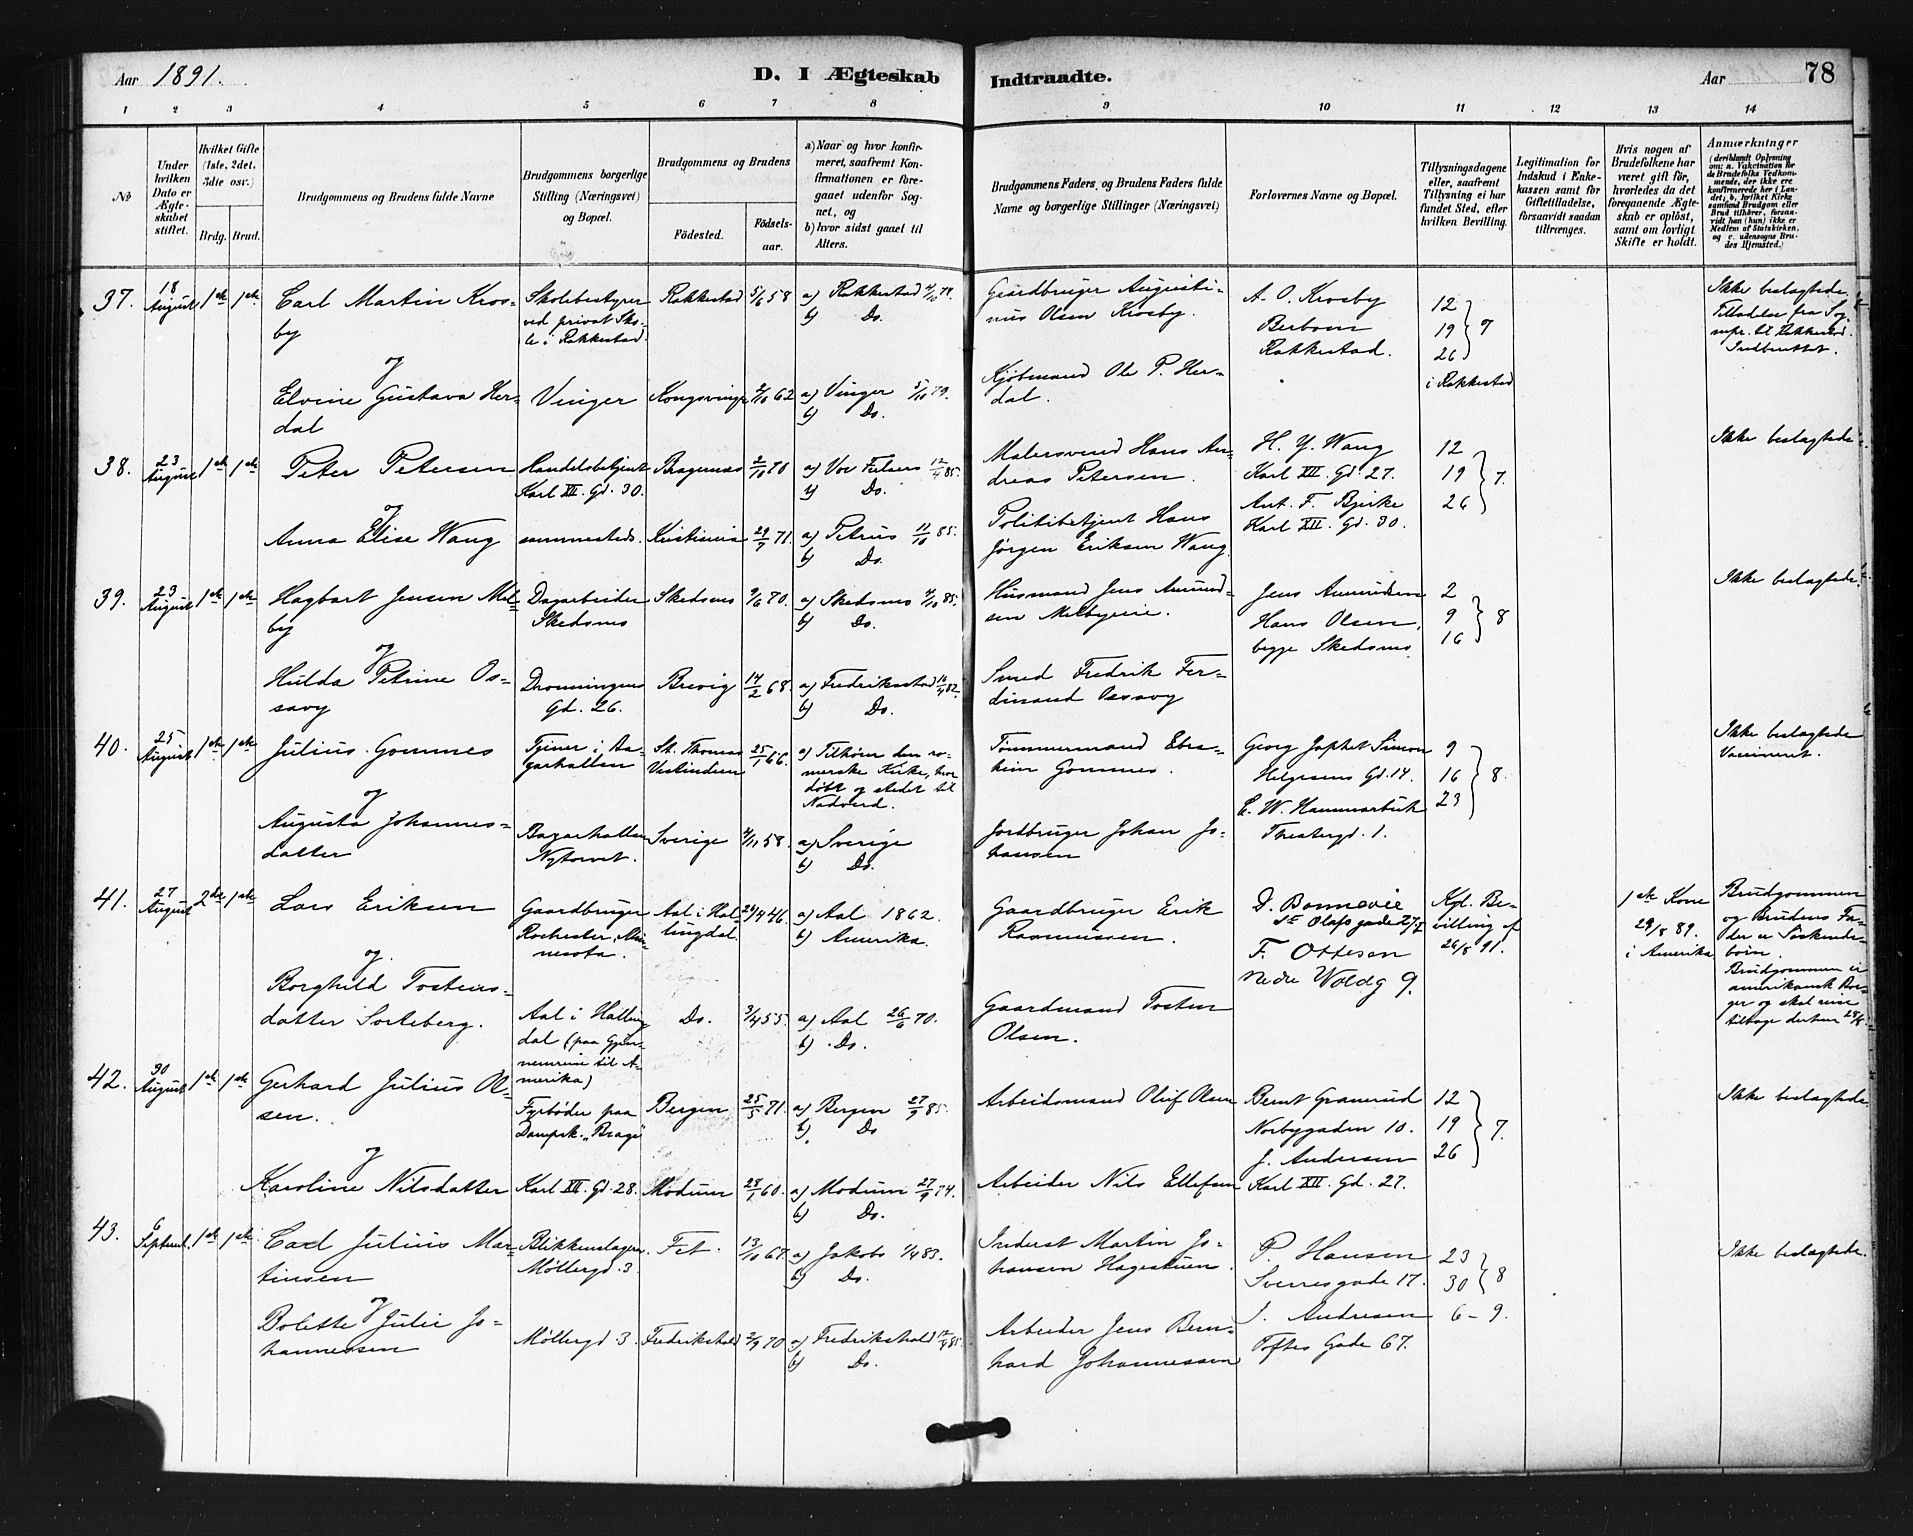 Aar 1891.
D. I Ægteskab Indtraadte.
Aar 78
1 2 3 4 5 6 7 8 9 10 11 12 13 14
No
Under hvilken Dato er Ægteskabet stiftet.
Hvilket Gifte (1ste, 2det, 3die osv.)
Brdg. Brud.
Brudgommens og Brudens fulde Navne
Brudgommens borgerlige Stilling (Næringsvei) og Bopæl.
Brudgommens og Brudens
Fødested.
Fødselsaar.
a) Naar og hvor konfirmeret, saafremt Konfirmationen er foregaaet udenfor Sognet, og
b) hvor sidst gaaet til Alters.
Brudgommens Faders, og Brudens Faders fulde Navne og borgerlige Stillinger (Næringsvei)
Forlovernes Navne og Bopæl.
Tillysningsdagene eller, saafremt Tillysning ei har fundet Sted, efter hvilken Bevilling.
Legitimation for Indskud i Enkekassen samt for Giftetilladelse, forsaavidt saadan tiltrænges.
Hvis nogen af Brudefolkene har været gift før, hvorledes da det foregaaende Ægteskab er opløst, samt om lovligt Skifte er holdt.
Anmærkninger (deriblandt Oplysning om: a. Vakcination for de Brudefolks Vedkommende, der ikke ere konfirmerede her i Landet; b. hvilket Kirkesamfund Brudgom eller Brud tilhører, forsaavidt han (hun) ikke er Medlem af Statskirken, og c. udensogns Brudes Hjemsted.)
37. 18 August 1ste 1ste
Carl Martin Krosby
Skolebestyrer ved privat Skole i Rakkestad.
Rakkestad 5/6 58
a) Rakkestad
b) Do.
Gaardbruger Augustinus Olsen Krosby.
A. O. Krosby
Rakkestad.
12
19
26
i Rakkestad
Ikke beslægtede
Tilladelse fra Sognepr. til Rakkestad.
og
Elvine Gustava Herdal
Vinger
Kongsvinger 62
a) Vinger 5/10 79.
b) Do.
Kjøbmand Ole P. Herdal.
38. 23 August 1ste 1ste
Peter Petersen
Handelsbetjent Karl XII. Gd. 30.
Bragernæs 2/10 70
a) Vor Frelsers 12/4 85.
b) Do.
Malersvend Hans Andreas Petersen.
H. Y. Wang
Karl XII. Gd. 27.
Ant. F. Bjerke
Karl XII. Gd. 30.
12
19
26
7.
Ikke beslægtede
og
Anna Elise Wang
sammesteds.
Kristiania 29/7 71.
a) Petrus 11/10 85.
b) Do.
Politibetjent Hans Jørgen Eriksen Wang
39. 23 August 1ste 1ste
Hagbart Jensen Melby
Dagarbeider Skedsmo
Skedsmo 9/6 70.
a) Skedsmo 4/10 85.
b) Do.
Husmand Jens Amundsen Melbyeie.
Jens Amundsen
Hans Olsen,
begge Skedsmo
2
9
16
8
Ikke beslægtede.
og
Hulda Petrine Ossavy
Dronningens Gd. 26.
Brevig 14/2 68.
a) Fredriksstad 16/4 82.
b) Do.
Smed Fredrik Ferdinand Ossavy
40. 25 August 1ste 1ste
Julius Gommes
Tjener i Bazarhallen
St. Thomas Vestindien 25/1 66.
a) Tilhører den romerske Kirke, hvor døbt og stedet til Nadverd.
Tømmermand Ebrahim Gommes.
Georg Japhet Simon
Helgesens Gd. 14.
E. W. Hammarbäck
Theatergd. 1.
9
16
23
8.
Ikke beslægtede
Vaccineret.
og
Augusta Johannesdatter
Bazarhallen Nytorvet.
Sverige 4/11 58.
a) Sverige
b) Do.
Jordbruger Johan Johansen
41. 27 August 2det 1ste
Lars Eriksen
Gaardbruger Rochester, Minnesota.
Aal i Hallingdal. 24/4 46.
a) Aal 1862.
b) Amerika.
Gaardbruger Erik Rasmussen.
D. Bonnevie
St Olafs gade 27
F. Ottesen
Nedre Voldg 9.
Kgl. Bevilling af 26/8 91.
1ste Kone 29/8 89. i Amerika
Brudgommen og Brudens Fader er Søskendebørn.
Brudgommen er amerikansk Borger og skal reise tilbage derhen 28/8.
og
Borghild Tostensdatter Sorteberg.
Aal i Hallingdal (paa Gjennemreise til Amerika)
Do. 3/4 55.
a) Aal 26/6 70.
b) Do.
Gaardmand Tosten Olsen.
42. 30 August 1ste 1ste
Gerhard Julius Olsen.
Fyrbøder paa Dampsk. "Brage"
Bergen 25/5 71.
a) Bergen 27/9 85.
b) Do
Arbeidsmand Oluf Olsen
Bernt Granerud
Norbygaden 10.
J. Andersen
Karl XII. Gd. 27.
12
19
26
7.
Ikke beslægtede.
og
Karoline Nilsdatter
Karl XII. Gd. 28.
Modum 28/1 60.
a) Modum 27/9 74.
b) Do.
Arbeider Nils Ellefsen
43. 6 Septemb. 1ste 1ste
Carl Julius Martinsen
Blikkenslager. Møllergd. 3.
Fet. 13/10 67.
a) Jakobs 1/4 83.
b) Do.
Inderst Martin Johansen Hagestuen.
P. Hansen
Sverresgade 17.
J. Andresen
Toftes Gade 67.
23
30
8
6 – 9.
Ikke beslægtede.
og
Bolette Julie Johannessen
Møllergd 3.
Fredrikshald 2/9 70
a) Fredrikshald 12/4 85.
b) Do.
Arbeider Jens Bernhard Johannessen